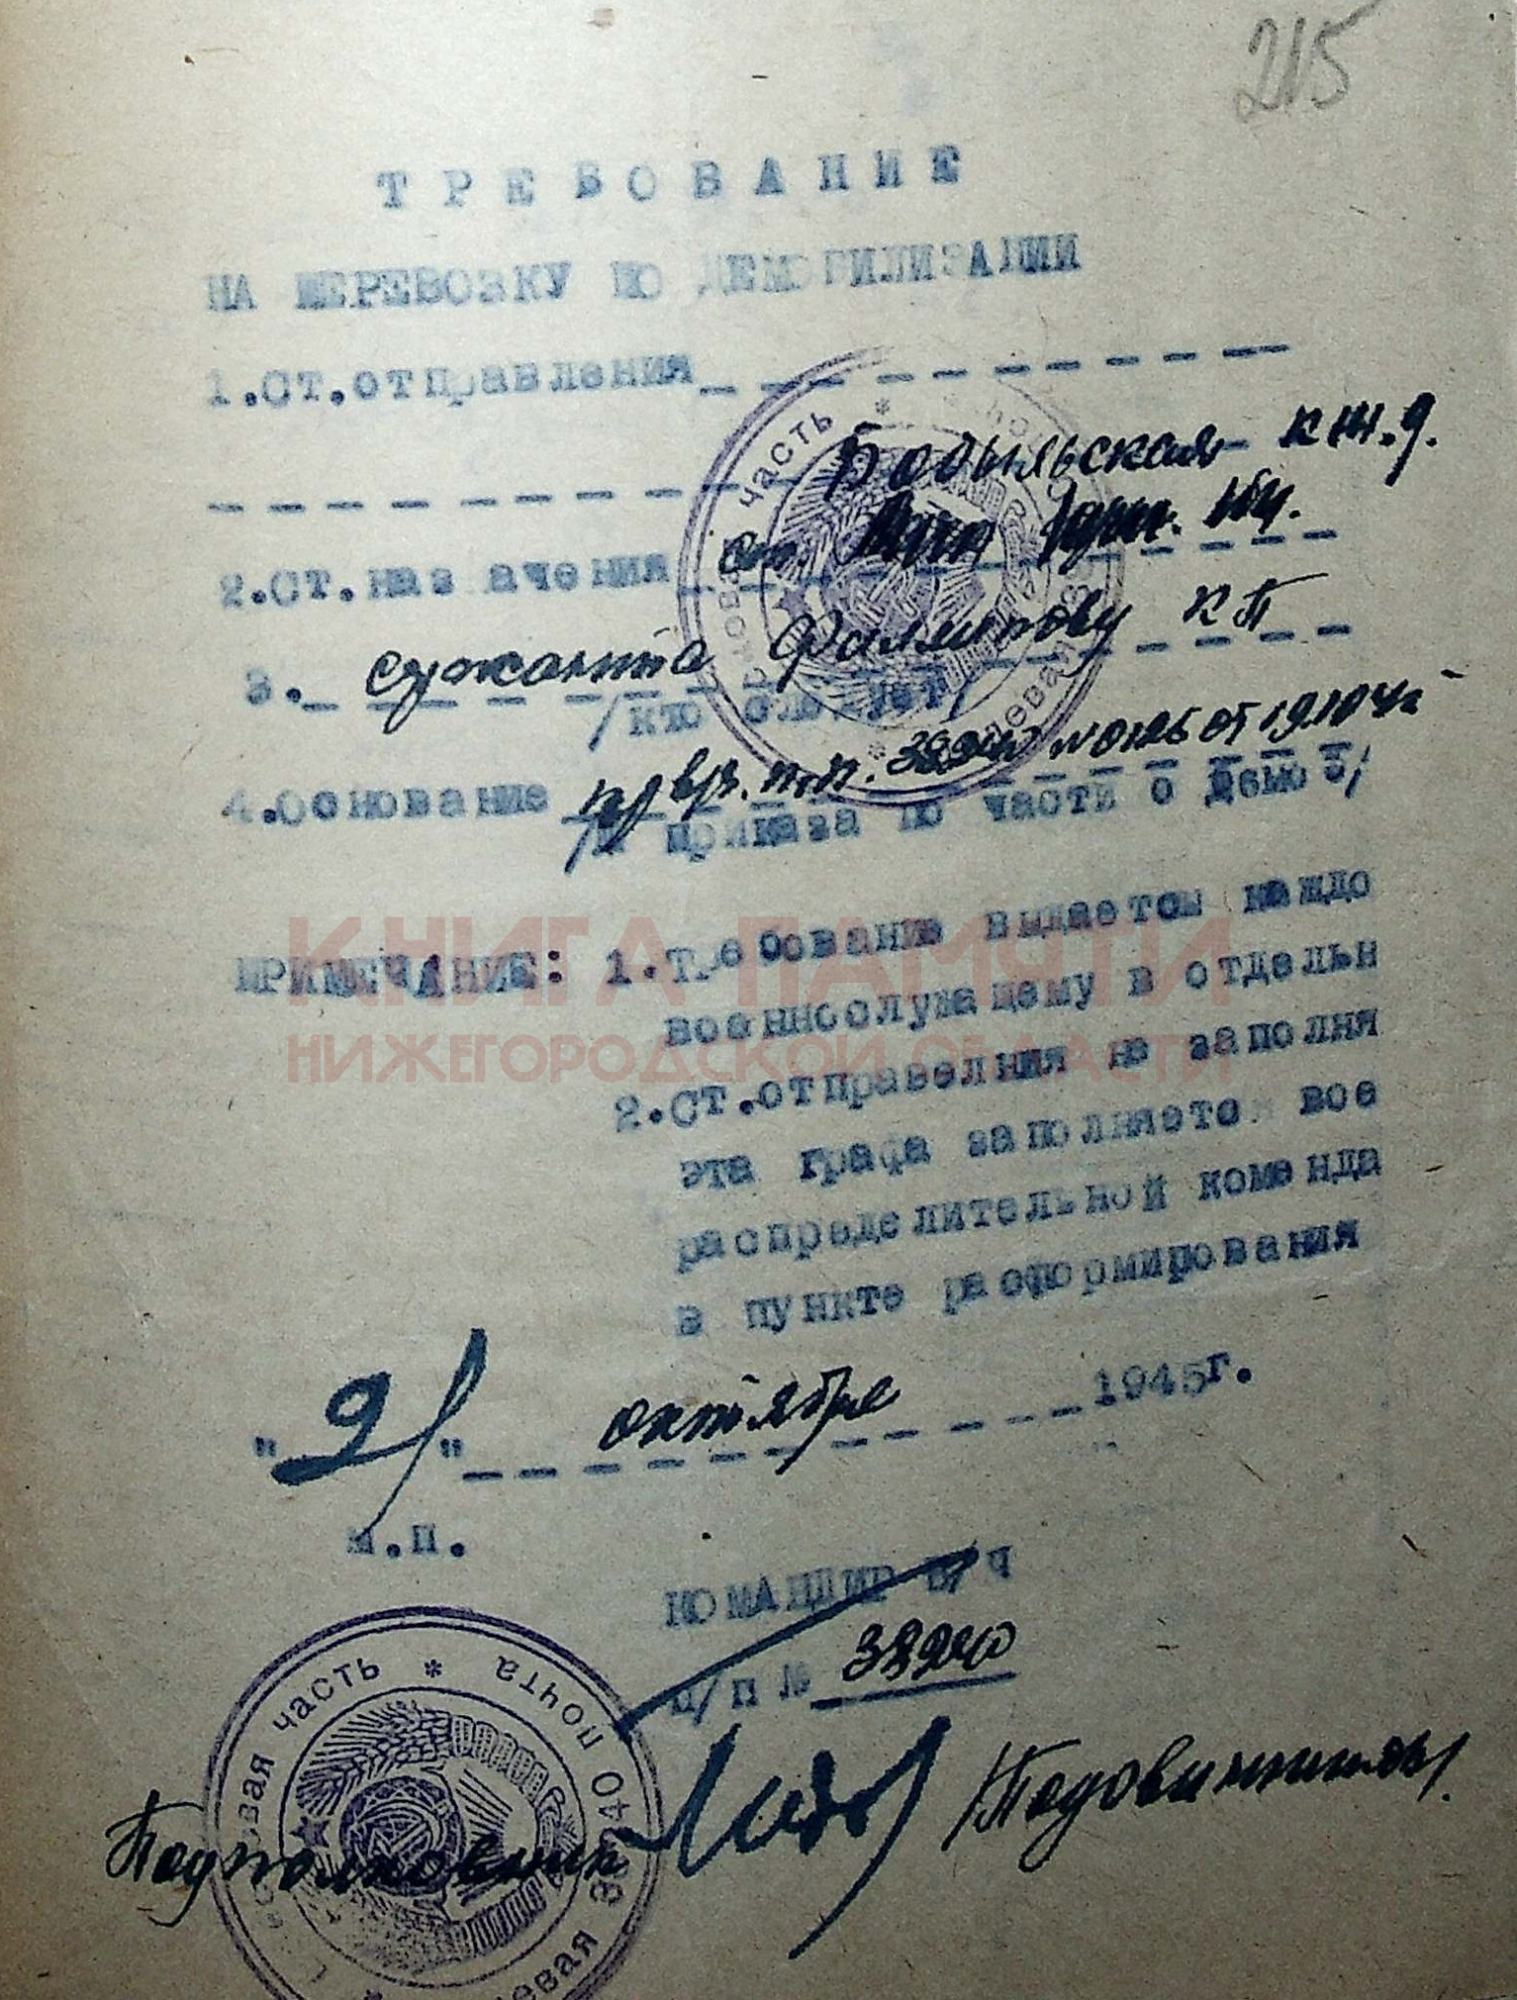 215
ТРЕБОВАНИЕ
НА ПЕРЕВОЗКУ ПО ДЕМОБИЛИЗАЦИИ
1.Ст.отправления
к ж.д.
2.Ст.наз ачения ст.
3. сержанта Филиппову К П
/кто следует/
4.Основание пр вр. п.п. 38240 №0126 от
/№ приказа по части о демоб/
КНИГА ПАМЯТИ
НИЖЕГОРОДСКОЙ ОБЛАСТИ
ПРИМЕЧАНИЕ: 1.Требование выдается каждо
военнослужащему в отдельн
2.Ст.отправелния не заполня
эта графа заполняется вое
распределительной коменда
в пункте расформирования
"9" октября 1945г.
м.п.
КОМАНДИР в/ч
п/п № 38240
Подполковник /Подовинников/.
часть * почта
полевая